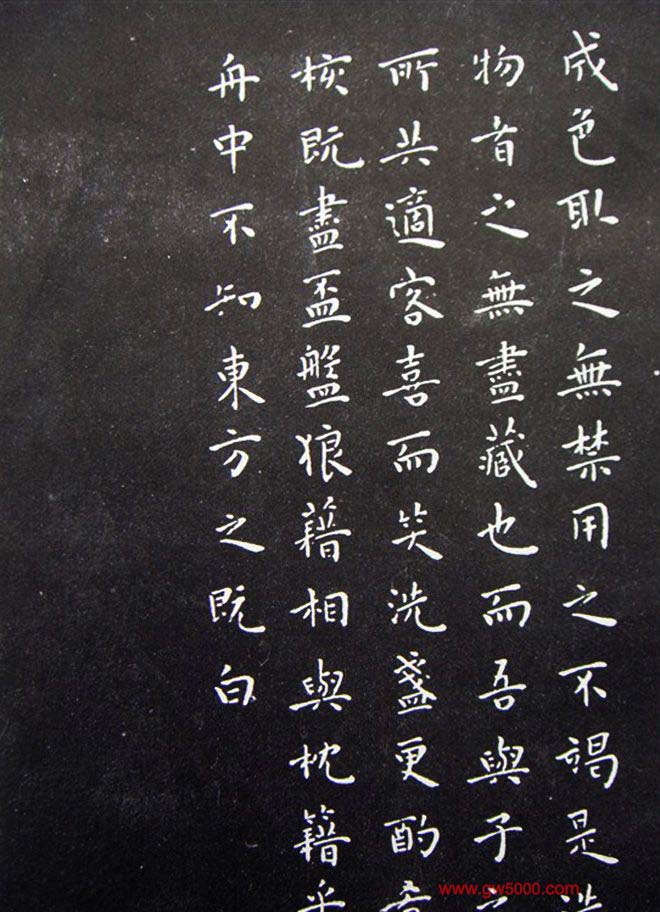 成色取之無禁用之不竭是造
物者之無盡藏也而吾與子之
所共適客喜而笑洗盞更酌肴
核既盡盃盤狼藉相與枕籍乎
舟中不知東方之既白
www.gw5000.com